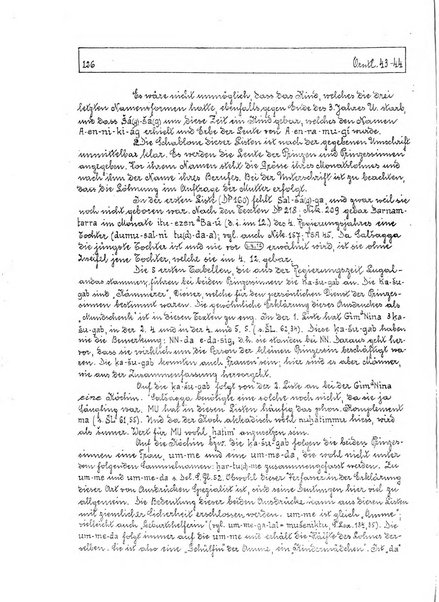 126 Orient. 43-44
Es wäre nicht unmöglich, dass das Kind, welches die drei
letzten Namensformen hatte, ebenfalls gegen Ende des 3. Jahres U. starb,
und dass Šá(g)-šá(g) um diese Zeit ein Kind gebar, welches den Namen
A-en-ni-ki-ág erhielt und Erbe der Leute von A-en-na-mu-gi wurde.
Die Schablone dieser Listen ist nach der gegebenen Umschrift
unmittelbar klar. Es werden die Leute der Prinzen und Prinzessinnen
nach ihm der Name ihres Berufes. Bei der Unterschrift ist zu beachten,
dass die Löhnung im Auftrage der Mutter erfolgt.
In der ersten Liste (№ 160) fehlt Šal-šá(g)-ga, und zwar weil sie
noch nicht geboren war. Nach den Texten № 218, Nik. 209 gebar Barnam-
tarra im Monate itu-ezen-Ba-ú (d. i. im 12.) des 4. Regierungsjahres eine
Tochter (dumu-sal-ni
die jüngste Tochter ist und nie vor erwähnt wird, ist sie ohne
Zweifel jene Tochter, welche sie im 4. 12. gebar.
Die 3 ersten Tabellen, die aus der Regierungszeit Lugal-
andas stammen, führen bei beiden Prinzessinnen die Ka-šu-gab an. Die ka-šu-
gab sind „Kämmerer", Diener, welche für den persönlichen Dienst der Prinzes-
sinnen bestimmt waren. Die gewöhnliche Erklärung dieses Ausdruckes als
„Mundschenk" ist in diesen Texten zu eng. In der 1. Liste hat Gim-ᵈNina 3 ka-
šu-gab, in der 2. 4 und in der 4. und 5. 5. Diese ka-šu-gab haben
die Bemerkung: NN-da e-da-sig, d. h. sie standen bei NN. Daraus geht her-
vor, dass sie wirklich um die Person der kleinen Prinzessin beschäftigt wa-
ren. Die ka-šu-gab konnten auch Frauen sein; hier sind es aber Männer,
wie aus der Zusammenfassung hervorgeht.
Auf die ka-šu-gab folgt von der 2. Liste an bei der Gim-ᵈNina
eine Köchin. Šališagga benötigte eine solche noch nicht, da sie ja
Säugling war. MU hat in diesen Listen häufig das phon. Komplement
ma Und da der Koch akkadisch wohl nuhatimmu hiess, wird
als sumer. Wert für MU wohl ḫa[l]im anzunehmen sein.
Auf die Köchin bzw. die ka-šu-gab folgen die beiden Prinzes-
sinnen eine Frau, um-me und eine um-me-da, die wohl nicht unter
dem folgenden Sammelnamen: ḫar-tu(d)-me zusammengefasst werden. Zu
um-me und um-me-da s. Del. S. Gl. 52. Obwohl dieser Verfasser in der Erklärung
dieser Art von Ausdrücken Spezialist ist, sind seine Deutungen hier viel zu
allgemein. Die Bedeutung dieser beiden Ausdrücke kann aus diesen Listen
mit ziemlicher Sicherheit erschlossen werden. um-me ist gleich „Amme",
vielleicht auch „Geburtshelferin"
um-me-da folgt immer auf die um-me und erhält die Hälfte des Lohnes der-
selben. Sie ist also eine „Gehülfin der Amme, ein Kindermädchen". Ist „da"